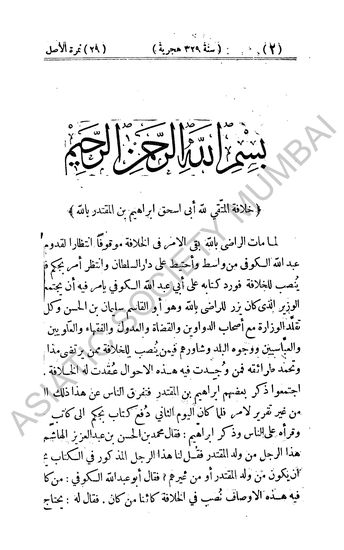 (٢) (سنة ٣٢٩ هجرية) (٢٩) نمرة الأصل
بسم الله الرحمن الرحيم
﴿خلافة المتقي لله أبي اسحق ابراهيم بن المقتدر بالله﴾
لما مات الراضى بالله بقى الامر فى الخلافة موقوفًا انتظارا لقدوم
عبد الله الكوفى من واسط وأحتيط على دار السلطان وانتظر أمر بجكم فيمن
يُنصب للخلافة فورد كتابه على أبي عبد الله الكوفي يامر فيه أن يجتمع مع
الوزير الذى كان يزر للراضى بالله وهو أبو القاسم سليمان بن الحسن وكل من
تقلّد الوزارة مع أصحاب الدواوين والقضاة والعدول والفقهاء والعلويين
والعباسيين ووجوه البلد وشاورهم فيمن يُنصب للخلافة ممن يرتضى مذاهبه
وتحمد طرائقه فمن وُجدت فيه هذه الاحوال عُقدت له الخلافة.
اجتمعوا ذكر بعضهم ابراهيم بن المقتدر فتفرق الناس عن هذا ذلك اليوم
من غير تقرير لامر فلما كان اليوم الثانى دُفع كتاب بجكم الى كاتب
وقرأه على الناس وذكر ابراهيم: فقال محمد بن الحسن بن عبد العزيز الهاشمى
هذا الرجل من ولد المقتدر فقل لنا هذا الرجل المذكور فى الكتاب يجب
ان يكون من ولد المقتدر أو من غيرهم؟ فقال أبو عبد الله الكوفى: من كانت
فيه هذه الاوصاف نُصب فى الخلافة كائنا من كان. فقال له: يحتاج
ASIATIC SOCIETY MUMBAI